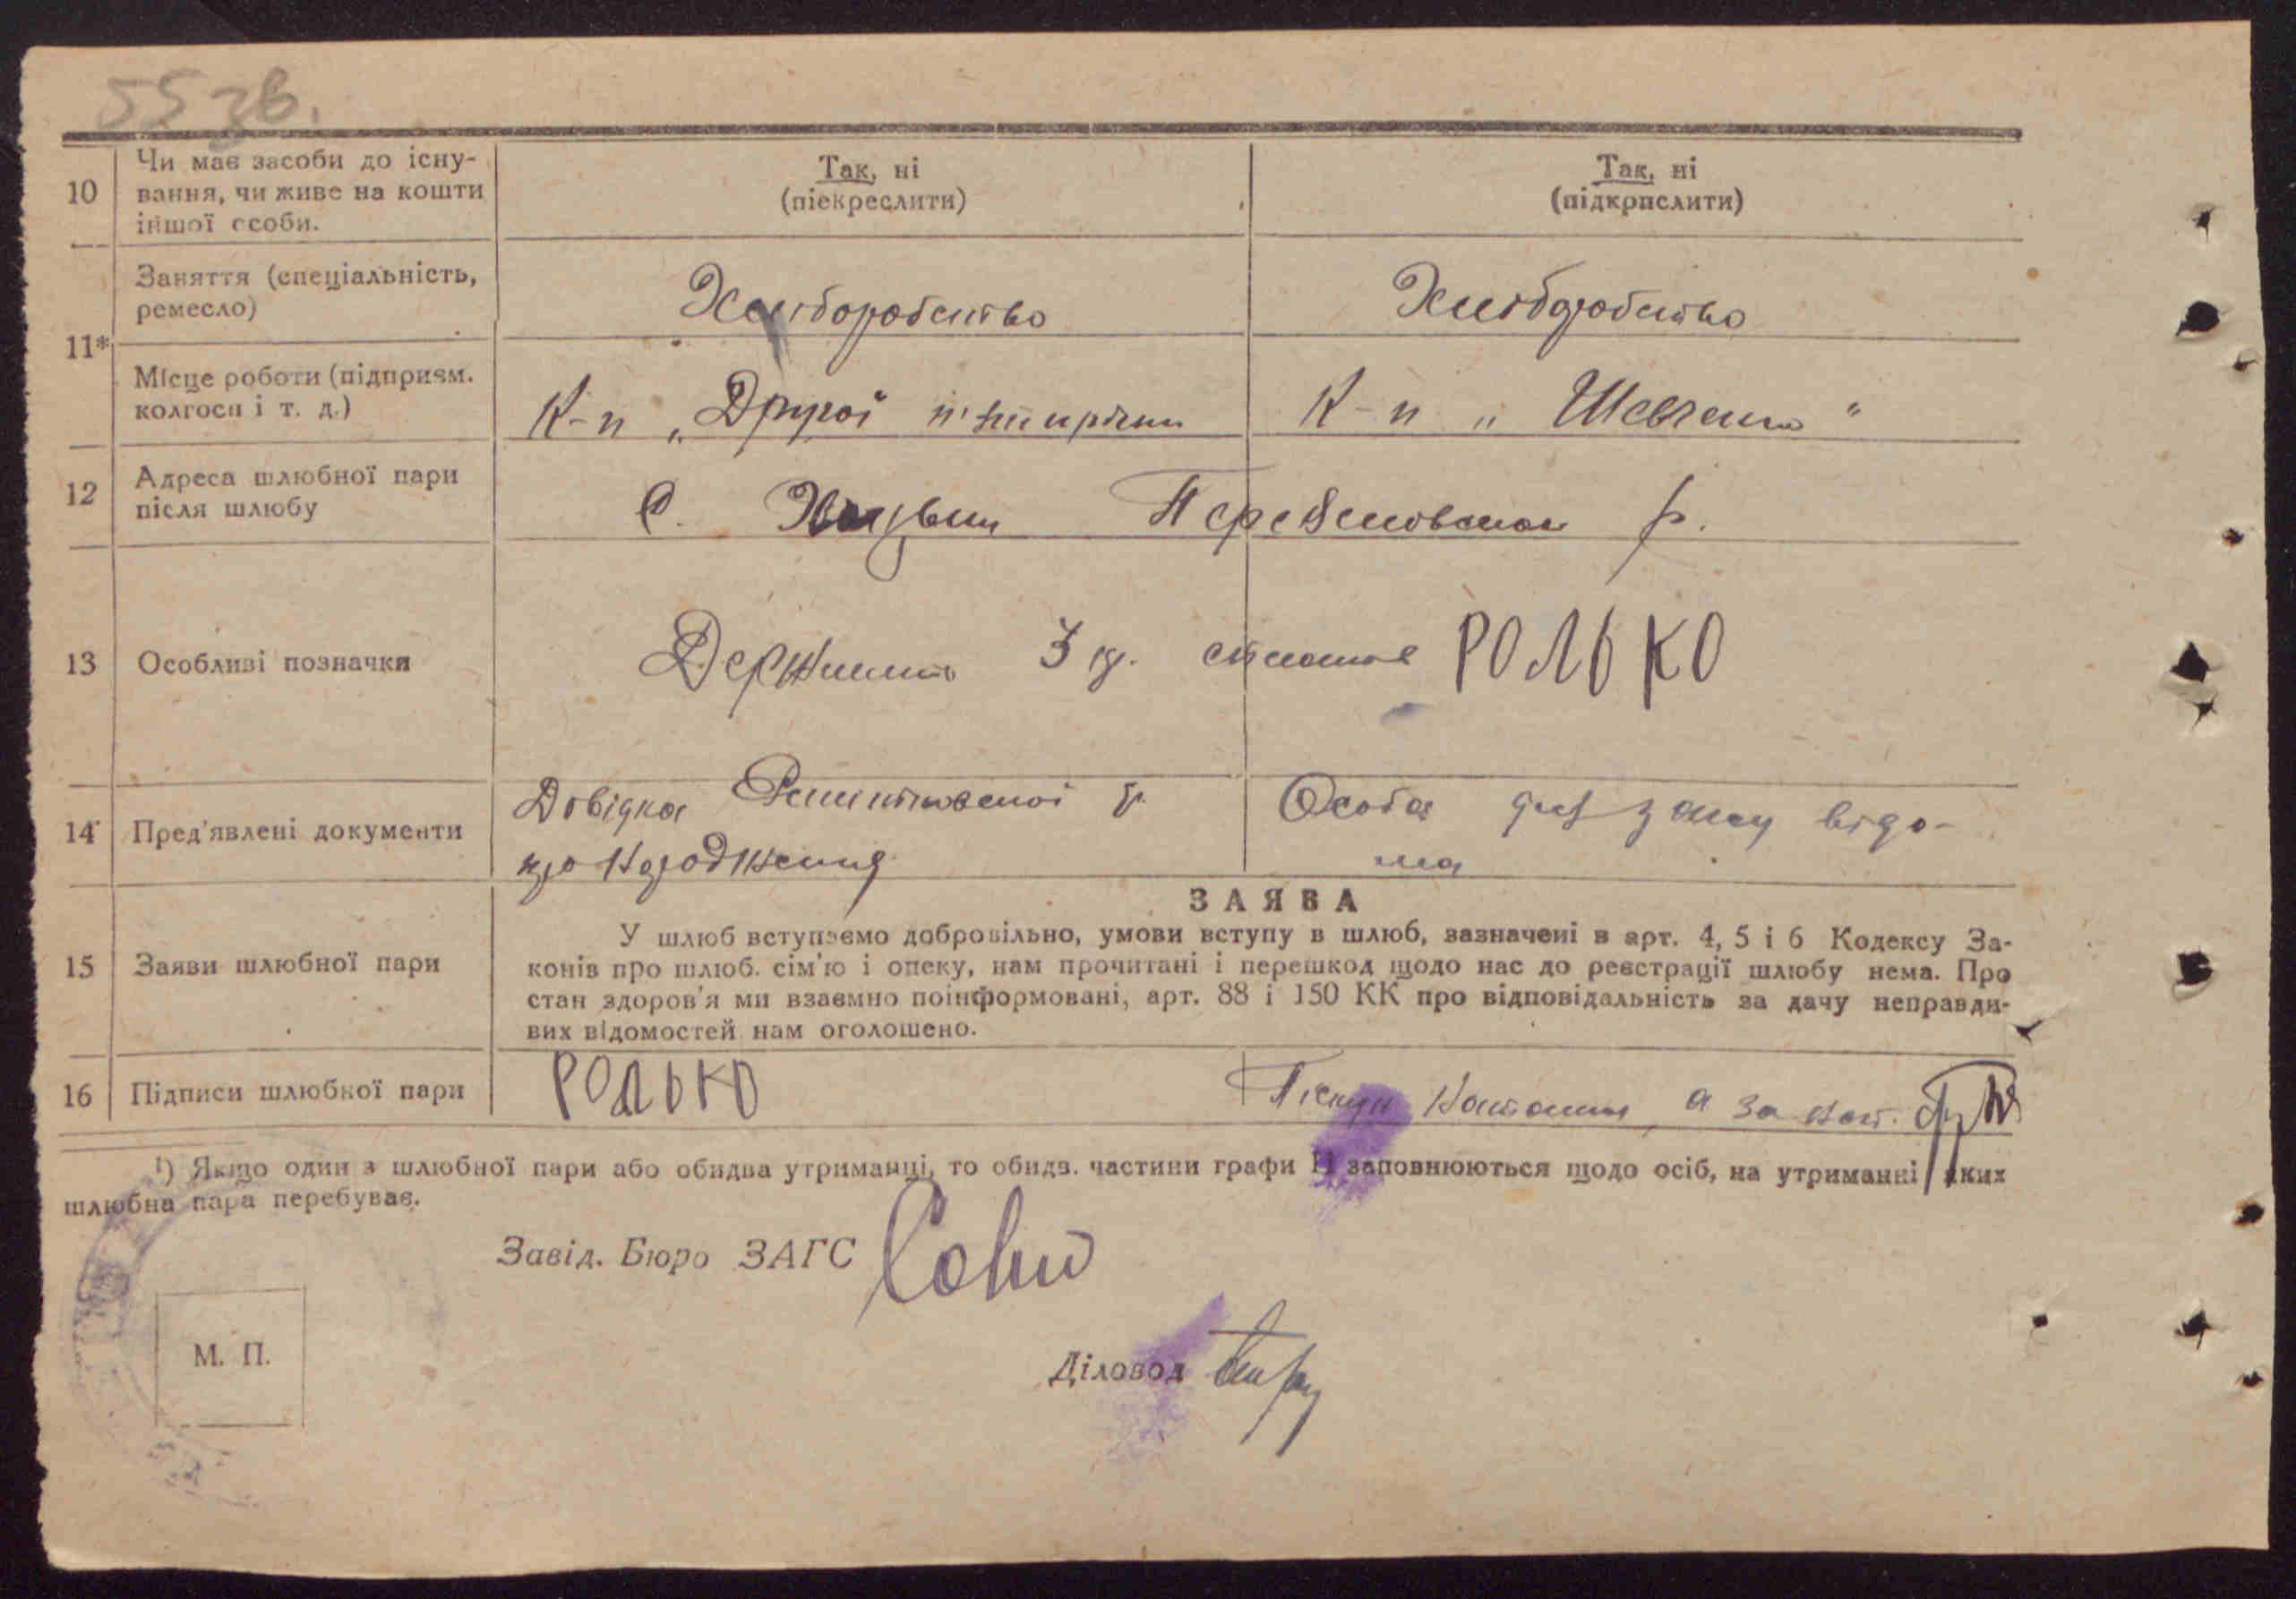 55 зв.
10
Чи має засоби до існу-
вання, чи живе на кошти
іншої особи.
Так, ні
(піекреслити)
Так, ні
(підкрпслити)
11*
Заняття (спеціальність,
ремесло)
Хліборобство
Хліборобство
Місце роботи (підприєм.
колгосп і т. д.)
К-п „Другої п'ятирічки
К-п „Шевченка"
12
Адреса шлюбної пари
після шлюбу
С. р.
13
Особливі позначки
Держмито 3 р. сплатив РОЛЬКО
14
Пред'явлені документи
Довідка Решитилівської
про народження
Особа для загсу відо-
ма
15
Заяви шлюбної пари
ЗАЯВА
У шлюб вступаємо добровільно, умови вступу в шлюб, зазначені в арт. 4, 5 і 6 Кодексу За-
конів про шлюб. сім'ю і опеку, нам прочитані і перешкод щодо нас до реєстрації шлюбу нема. Про
стан здоров'я ми взаємно поінформовані, арт. 88 і 150 КК про відповідальність за дачу неправди-
вих відомостей нам оголошено.
16
Підписи шлюбної пари
РОЛЬКО
а за
¹) Якщо один з шлюбної пари або обидва утриманці, то обидв. частини графи 11 заповнюються щодо осіб, на утриманні яких
шлюбна пара перебуває.
Завід. Бюро ЗАГС
М. П.
Діловод